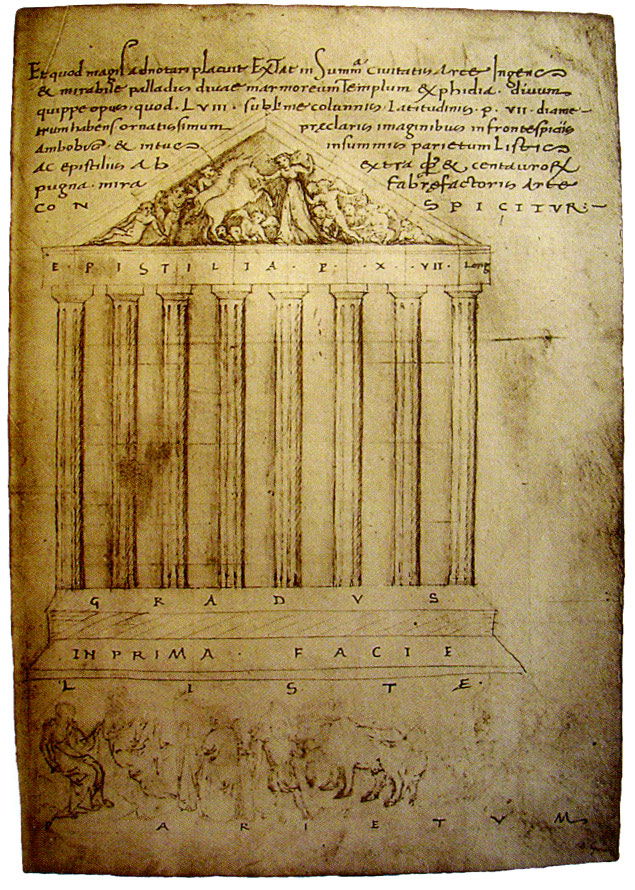 Et quod magis adnotari placuit Extat in Summa civitatis Arce Ingens
& mirabile palladis divae marmoreum Templum ex phidia · divum
quippe opus · quod · LVIII · sublime colannis Latitudinis · p · VII · diame-
trum habens ornatissimum praeclaris imaginibus in frontespiciis
Ambobus · & intus insummis parietum Listis
Ac epistilis Ab extra & centaurorum
pugna · mira fabrefactoris Arte
CON SPICITVR ·
EPISTILIA · P · X · VII · Long
GRADVS
IN PRIMA · FACIE
LISTE ·
PARIETVM